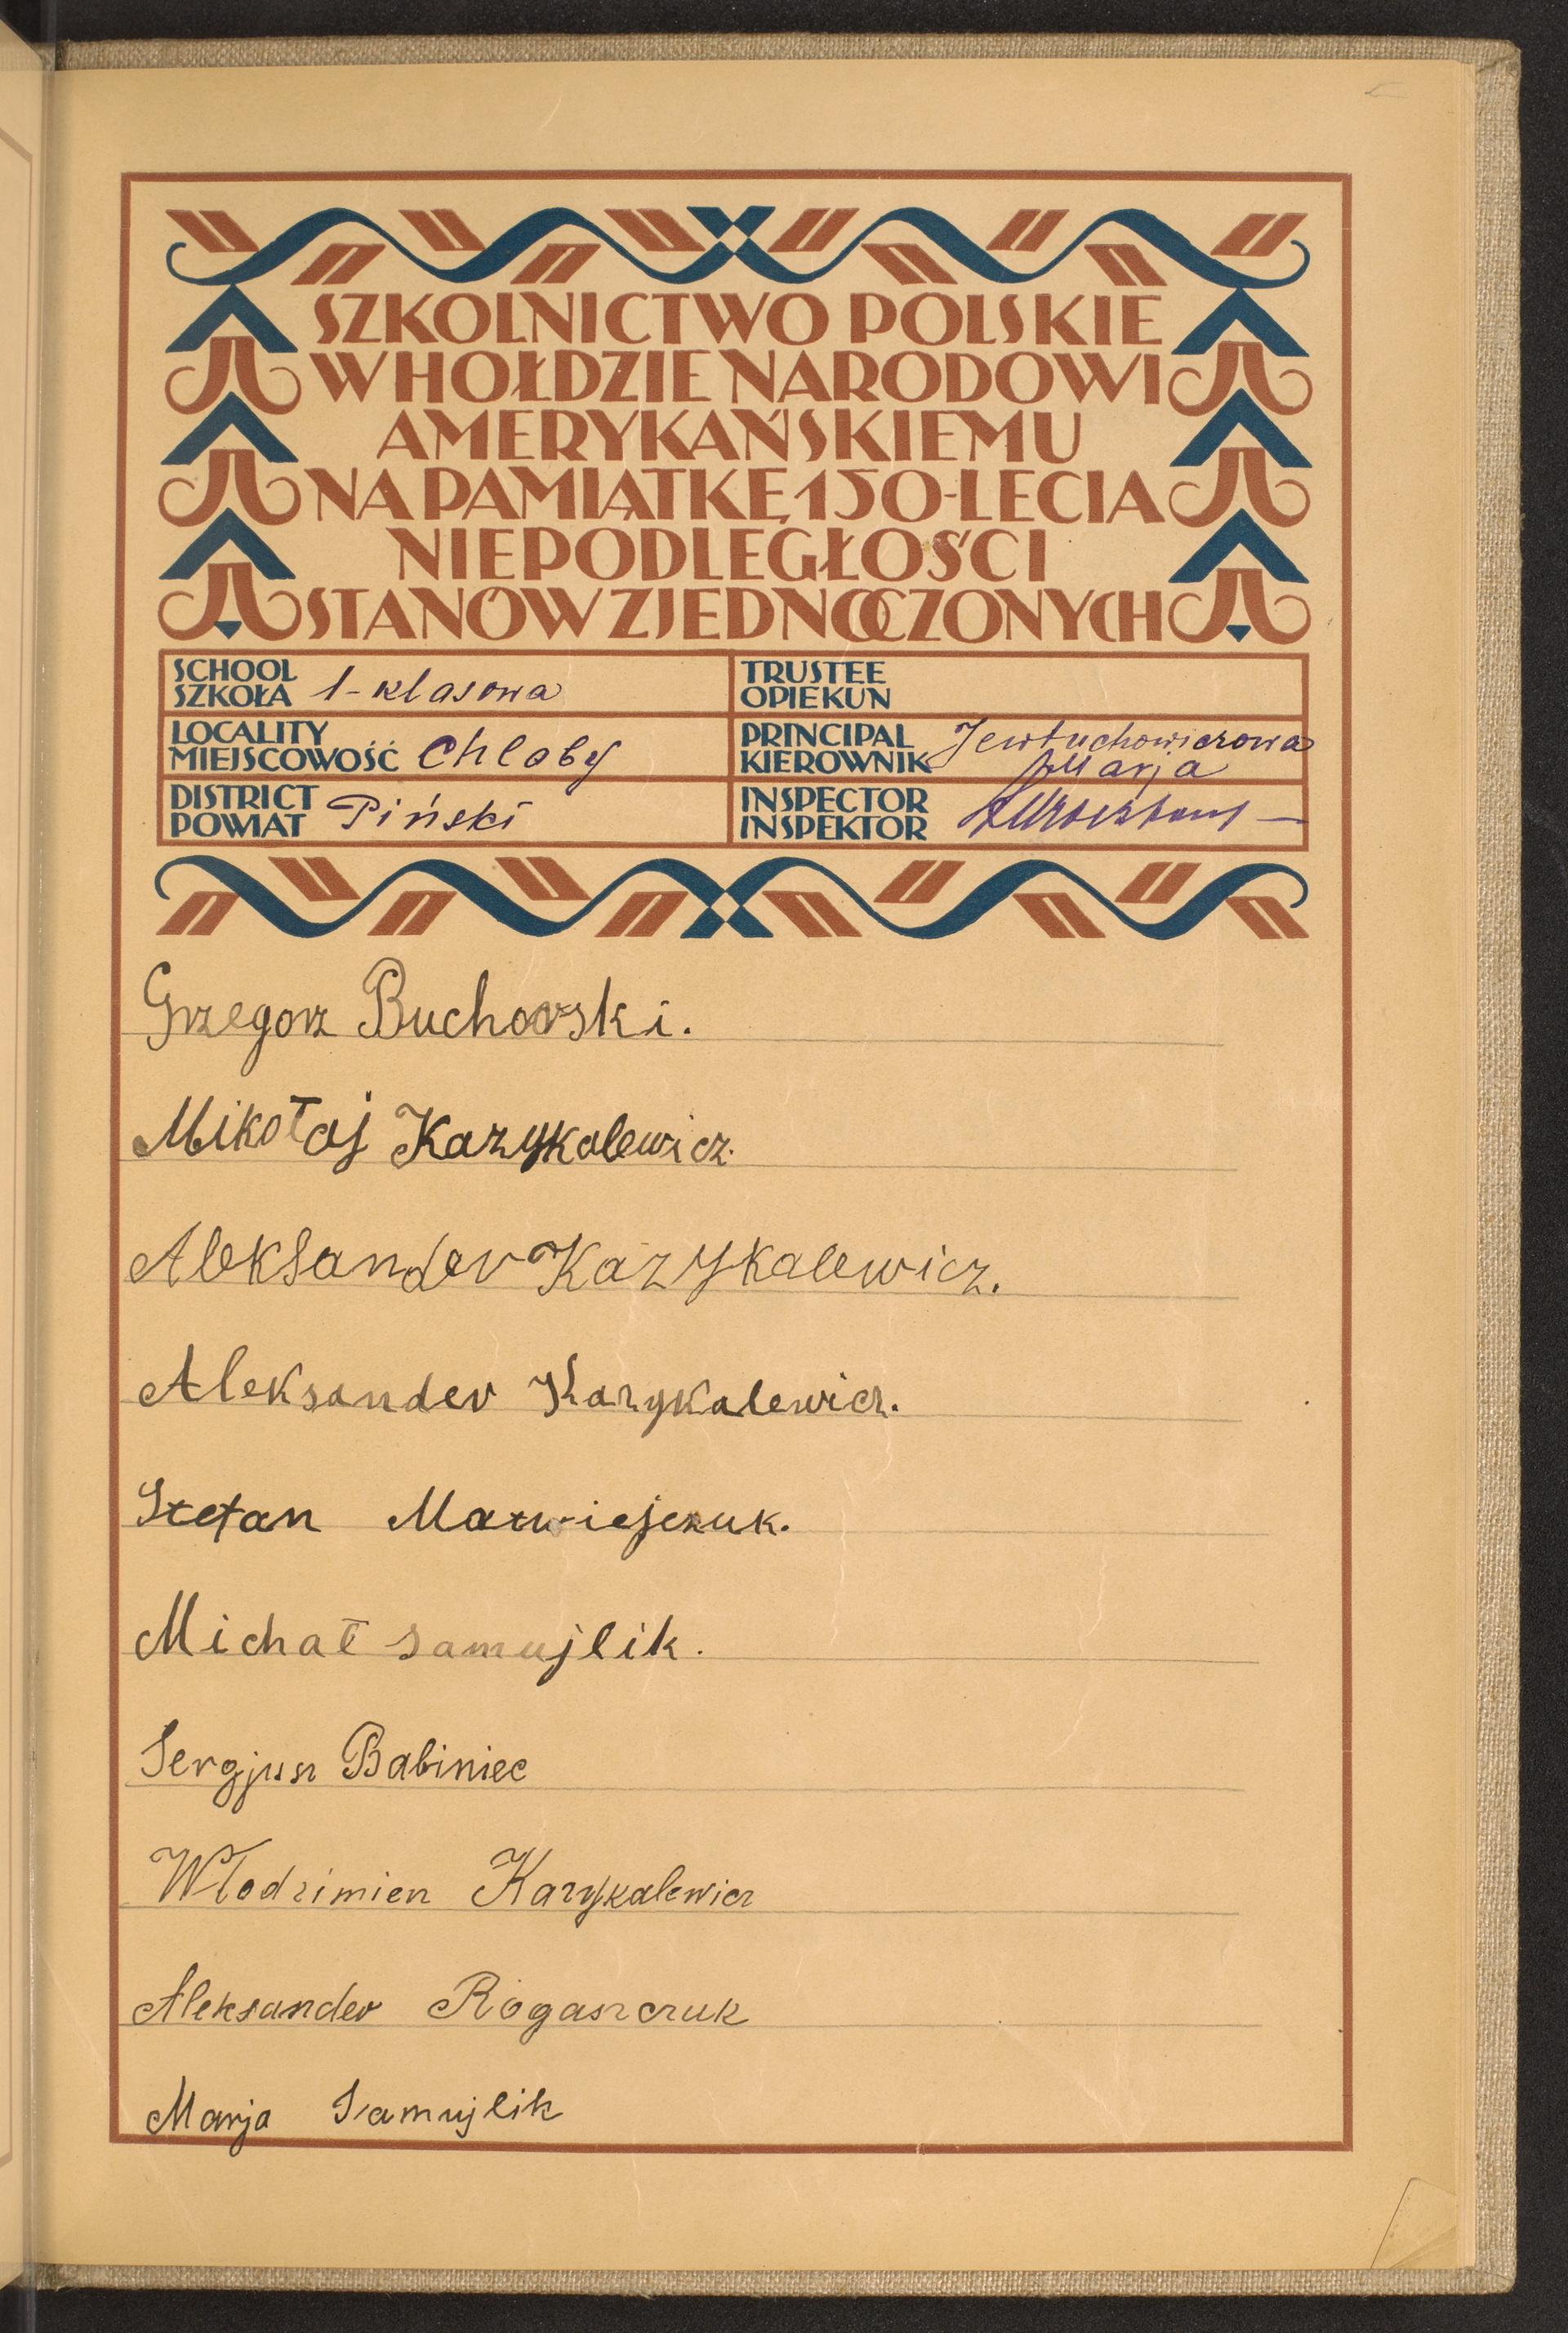 SZKOLNICTWO POLSKIE
W HOŁDZIE NARODOWI
AMERYKAŃSKIEMU
NA PAMIĄTKĘ 150-LECIA
NIEPODLEGŁOŚCI
STANÓW ZJEDNOCZONYCH
SCHOOL
SZKOŁA 1-klasowa
TRUSTEE
OPIEKUN
LOCALITY
MIEJSCOWOŚĆ Chlaby
PRINCIPAL
KIEROWNIK Jewtuchowiczowa
Marja
DISTRICT
POWIAT Piński
INSPECTOR
INSPEKTOR
Grzegorz Buchowski.
Mikołaj Kazykalewicz.
Aleksander Kazykalewicz.
Aleksander Kazykalewicz.
Stefan Matwiejczuk.
Michał Samujlik.
Sergjusz Babiniec
Włodzimierz Kazykalewicz
Aleksander Rogaszczuk
Marja Samujlik